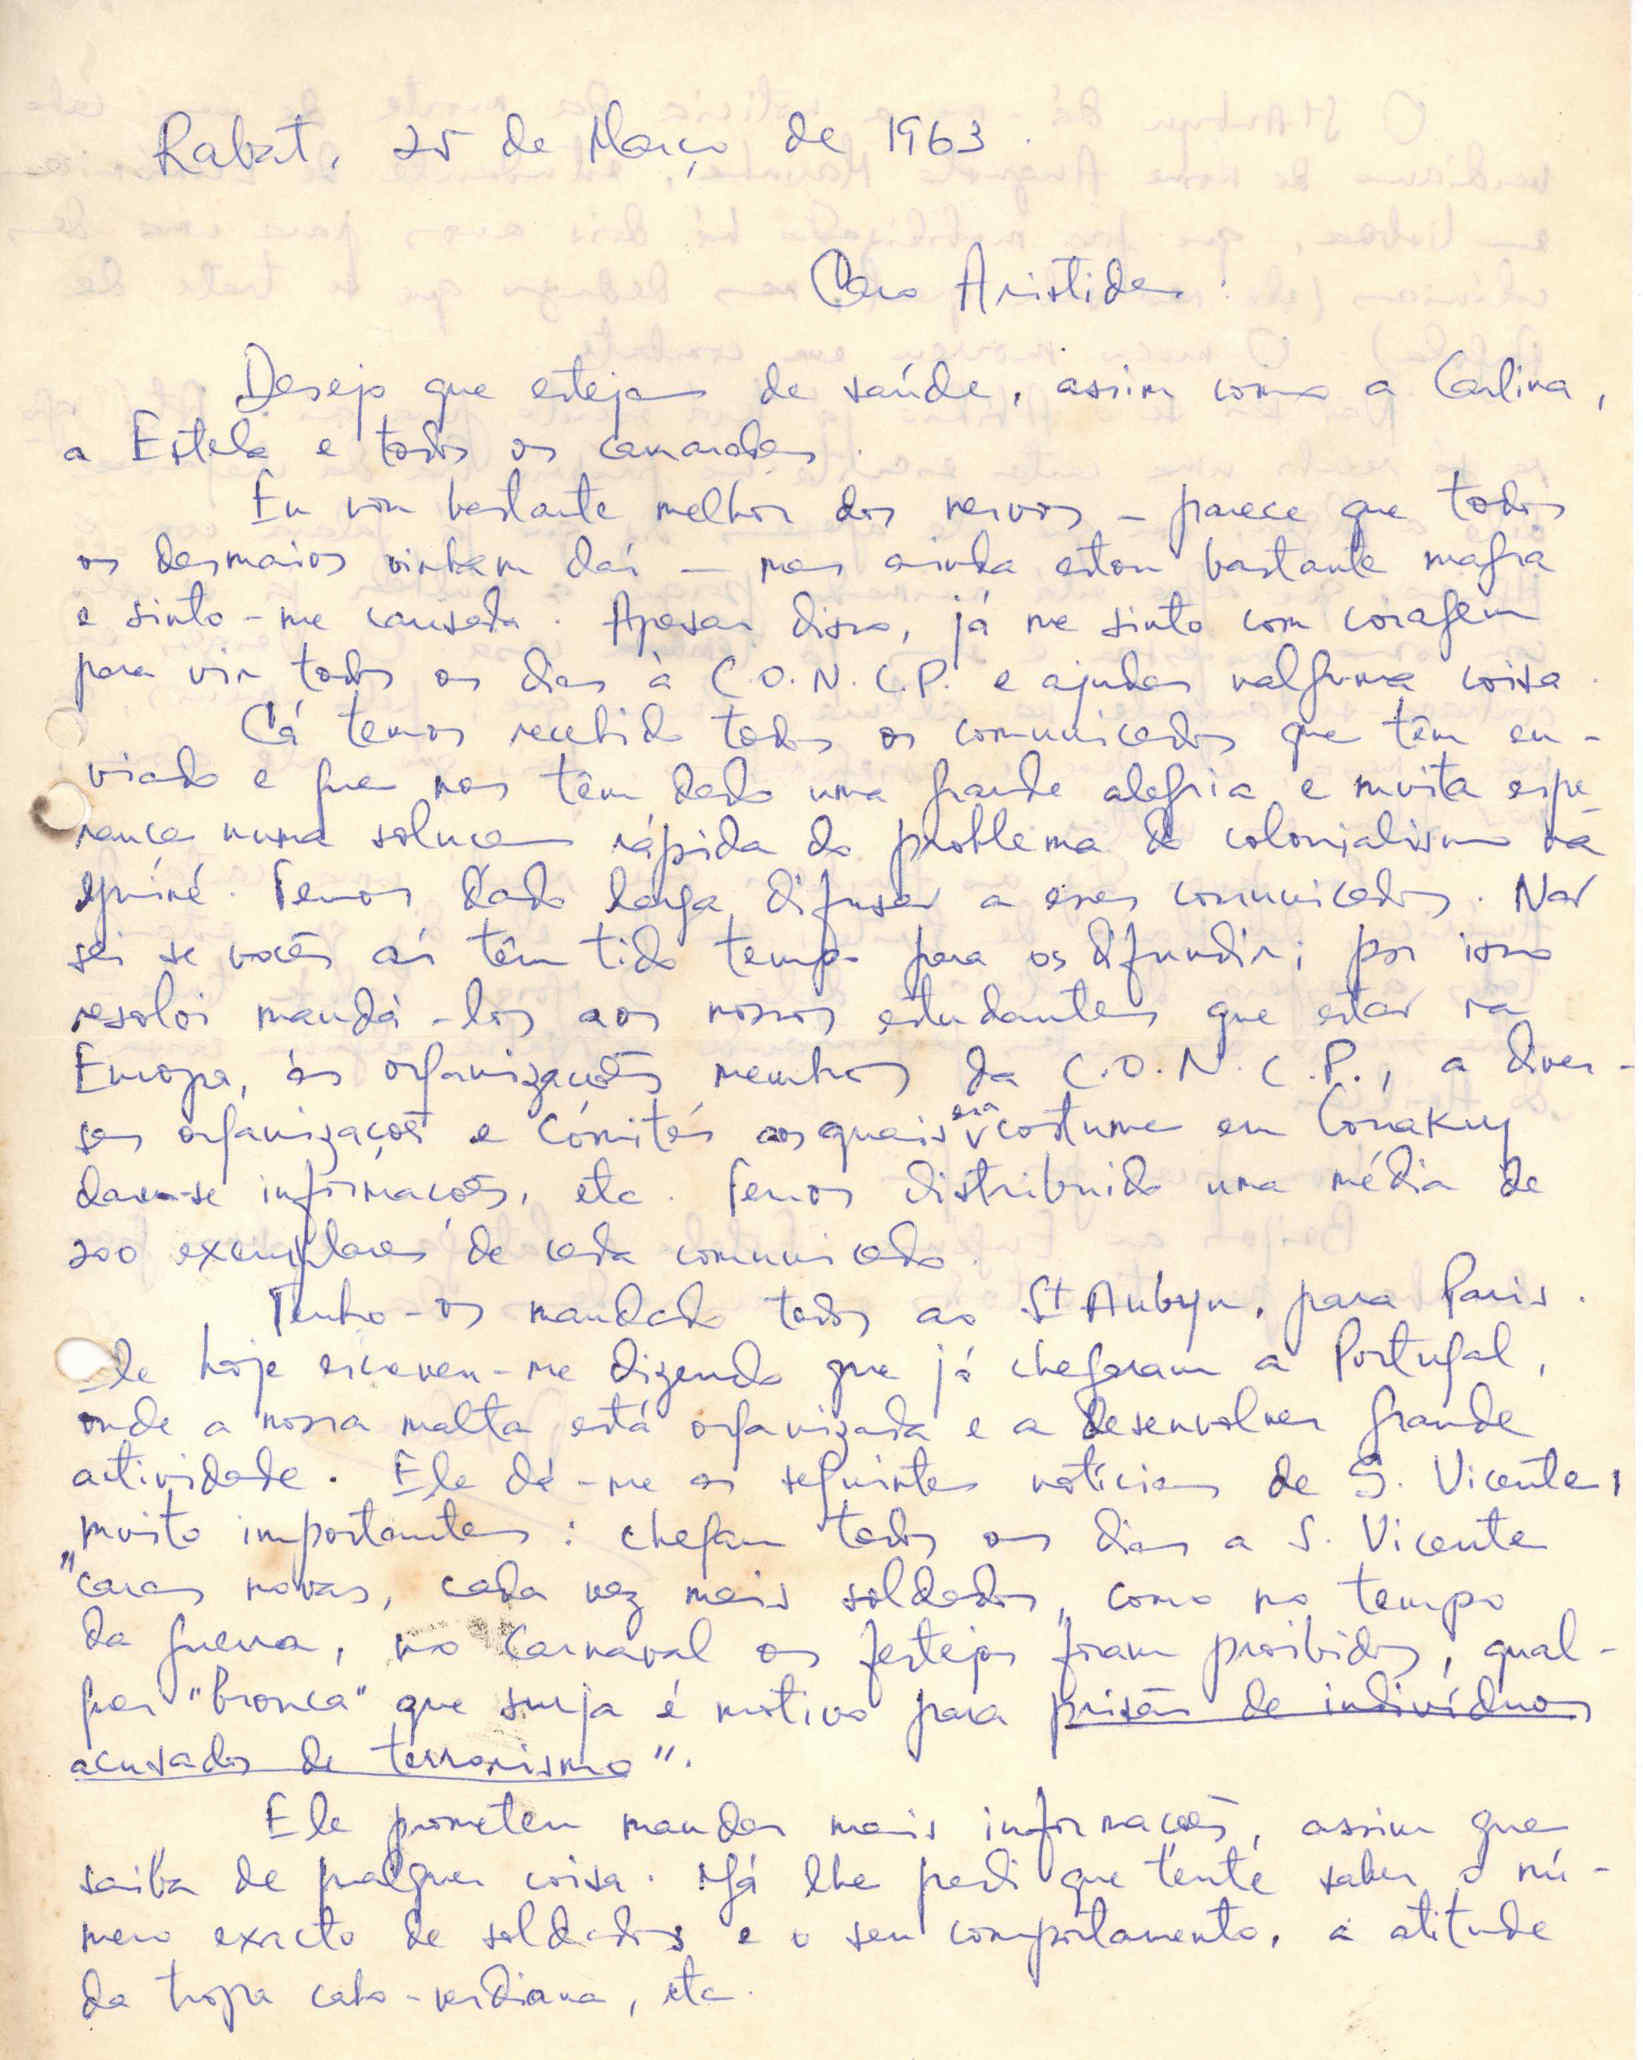 Rabat, 25 de Março de 1963.
Caro Aristides:
Desejo que estejas de saúde, assim como a Carlina,
a Estela e todos os camaradas.
Eu vou bastante melhor dos nervos – parece que todos
os desmaios vinham daí – mas ainda estou bastante magra
e sinto-me cansada. Apesar disso, já me sinto com coragem
para vir todos os dias à C.O.N.C.P. e ajudar nalguma coisa.
Cá temos recebido todos os comunicados que têm en-
viado e que nos têm dado uma grande alegria e muita espe-
rança numa solução rápida do problema do colonialismo na
Guiné. Temos dado larga difusão a esses comunicados. Não
sei se vocês aí têm tido tempo para os difundir; por isso
resolvi mandá-los aos nossos estudantes que estão na
Europa, às organizações membros da C.O.N.C.P., a diver-
sas organizações e Comités aos quais era costume em Conakry
darem-se informações, etc. Temos distribuido uma média de
200 exemplares de cada comunicado.
Tenho-os mandado todos ao St Aubyn, para Paris.
Ele hoje escreveu-me dizendo que já chegaram a Portugal,
onde a nossa malta está organizada e a desenvolver grande
actividade. Ele dá-me as seguintes notícias de S. Vicente,
muito importantes: chegam todos os dias a S. Vicente
"caras novas, cada vez mais soldados, como no tempo
da guerra, no Carnaval os festejos foram proibidos, qual-
quer "bronca" que surja é motivo para prisão de indivíduos
acusados de terrorismo".
Ele prometeu mandar mais informações, assim que
saiba de qualquer coisa. Já lhe pedi que tente saber o nú-
mero exacto de soldados e o seu comportamento, a atitude
da tropa cabo-verdiana, etc.